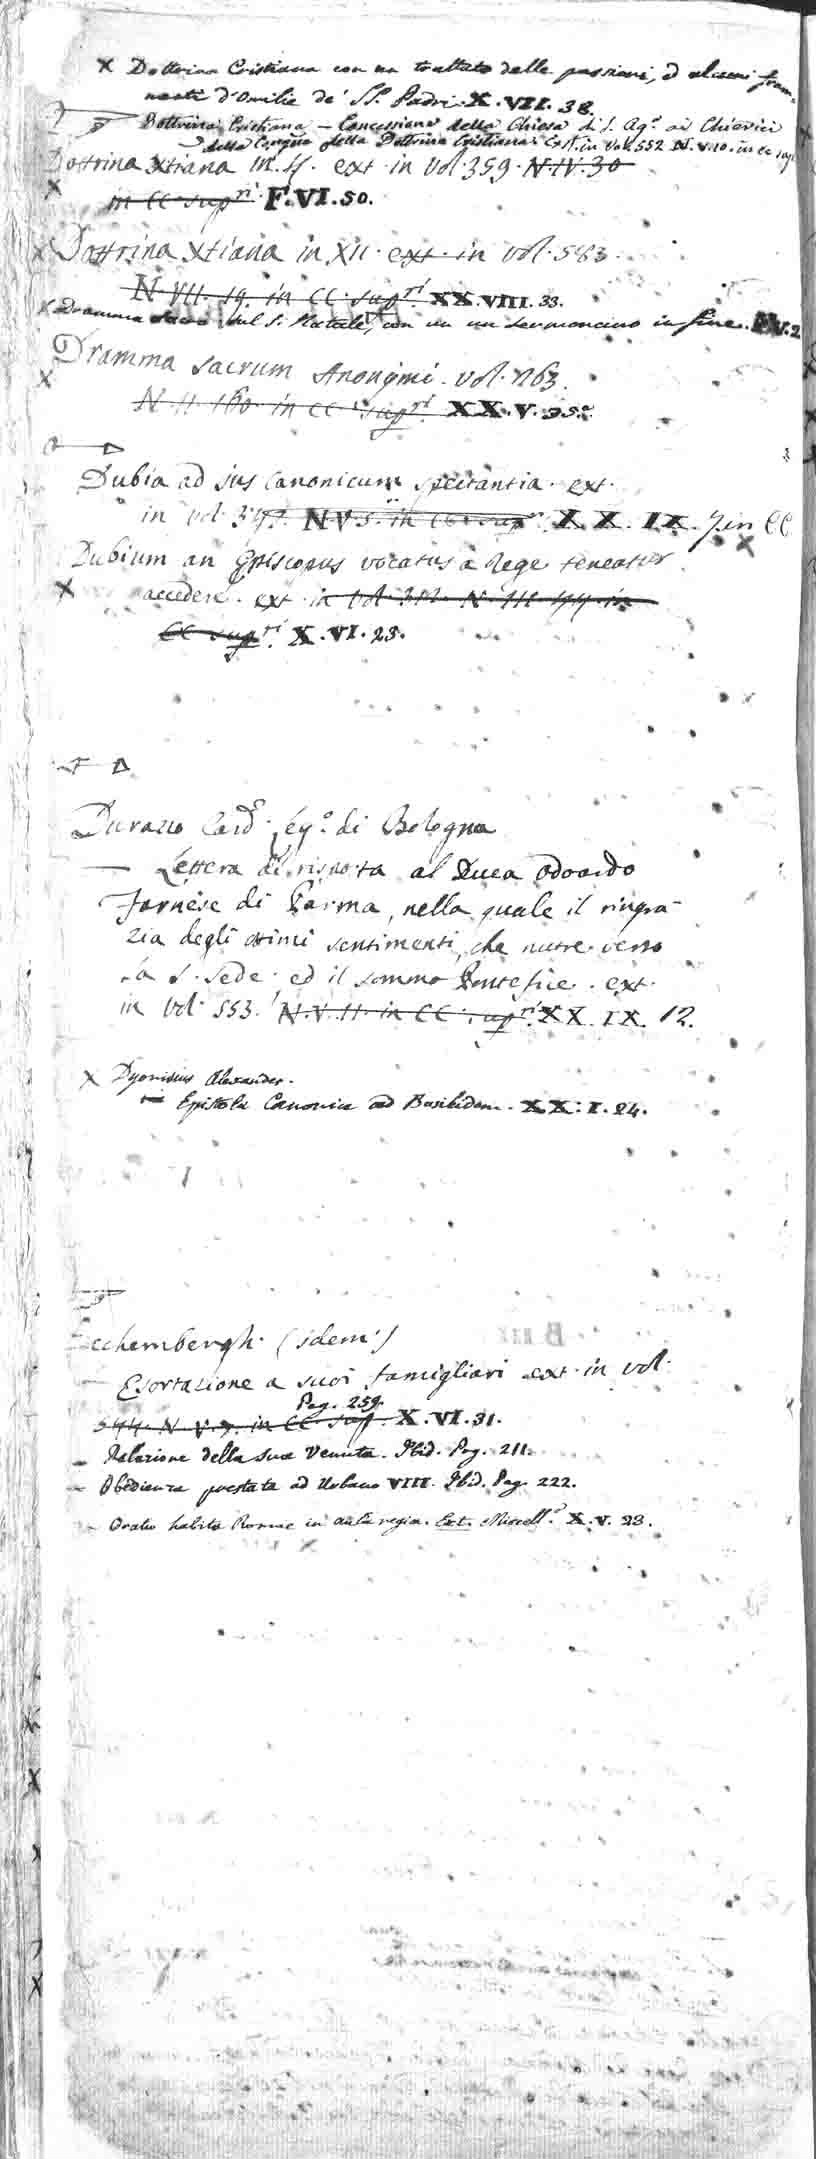 x Dottrina Cristiana con un trattato delle passioni, ed alcuni fram-
menti d'Omilie de' SS. Padri. X. VII. 38.
Dottrina Cristiana — Concessione della Chiesa di S. Ag.º ai Chierici
della Congne della Dottrina Cristiana. Ext. in Vol. 552 N. V. 10. in CC sup
Dottrina Xtiana in ext. in Vol. 359. N. IV. 30
x in CC. supri. F. VI. 50.
x Dottrina Xtiana in XII. ext. in vol. 583.
N. VII. 19. in CC. supri XX. VIII. 33.
x Dramma sacro sul S. Natale, con un sermoncino in fine. 2
Dramma Sacrum Anonymi. vol. 763.
x N. II. 160. in CC. supri XX. V. 35.
Dubia ad jus Canonicum spectantia. ext.
in vol. N. V. 5. in CC. supri XX. IX. 7. in CC
Dubium an Episcopus vocatus à Rege teneatur
x accedere. ext. in Vol. N. III. 44. in
CC supri. X. VI. 25.
Durazzo Card. Leg.º di Bologna
— Lettera di risposta al Duca Odoardo
Farnese di Parma, nella quale il ringra-
zia degli ottimi sentimenti, che nutre verso
la S. Sede. ed il sommo Pontefice. ext.
in Vol. 553. N. V. 11. in CC. supri XX. IX. 12.
x Dyonisius Alexander.
— Epistola Canonica ad Basilidem. XX. I. 24.
Ecchembergh. (idem)
— Esortazione a suoi famigliari ext. in vol.
Pag. 259.
544. N. V. 9. in CC. sup. X. VI. 31.
— Relazione della sua Venuta. Ibid. Pag. 211.
— Obedienza prestata ad Urbano VIII. Ibid. Pag. 222.
— Oratio habita Romae in aula regia. Ext. Miscell.ª X. V. 23.